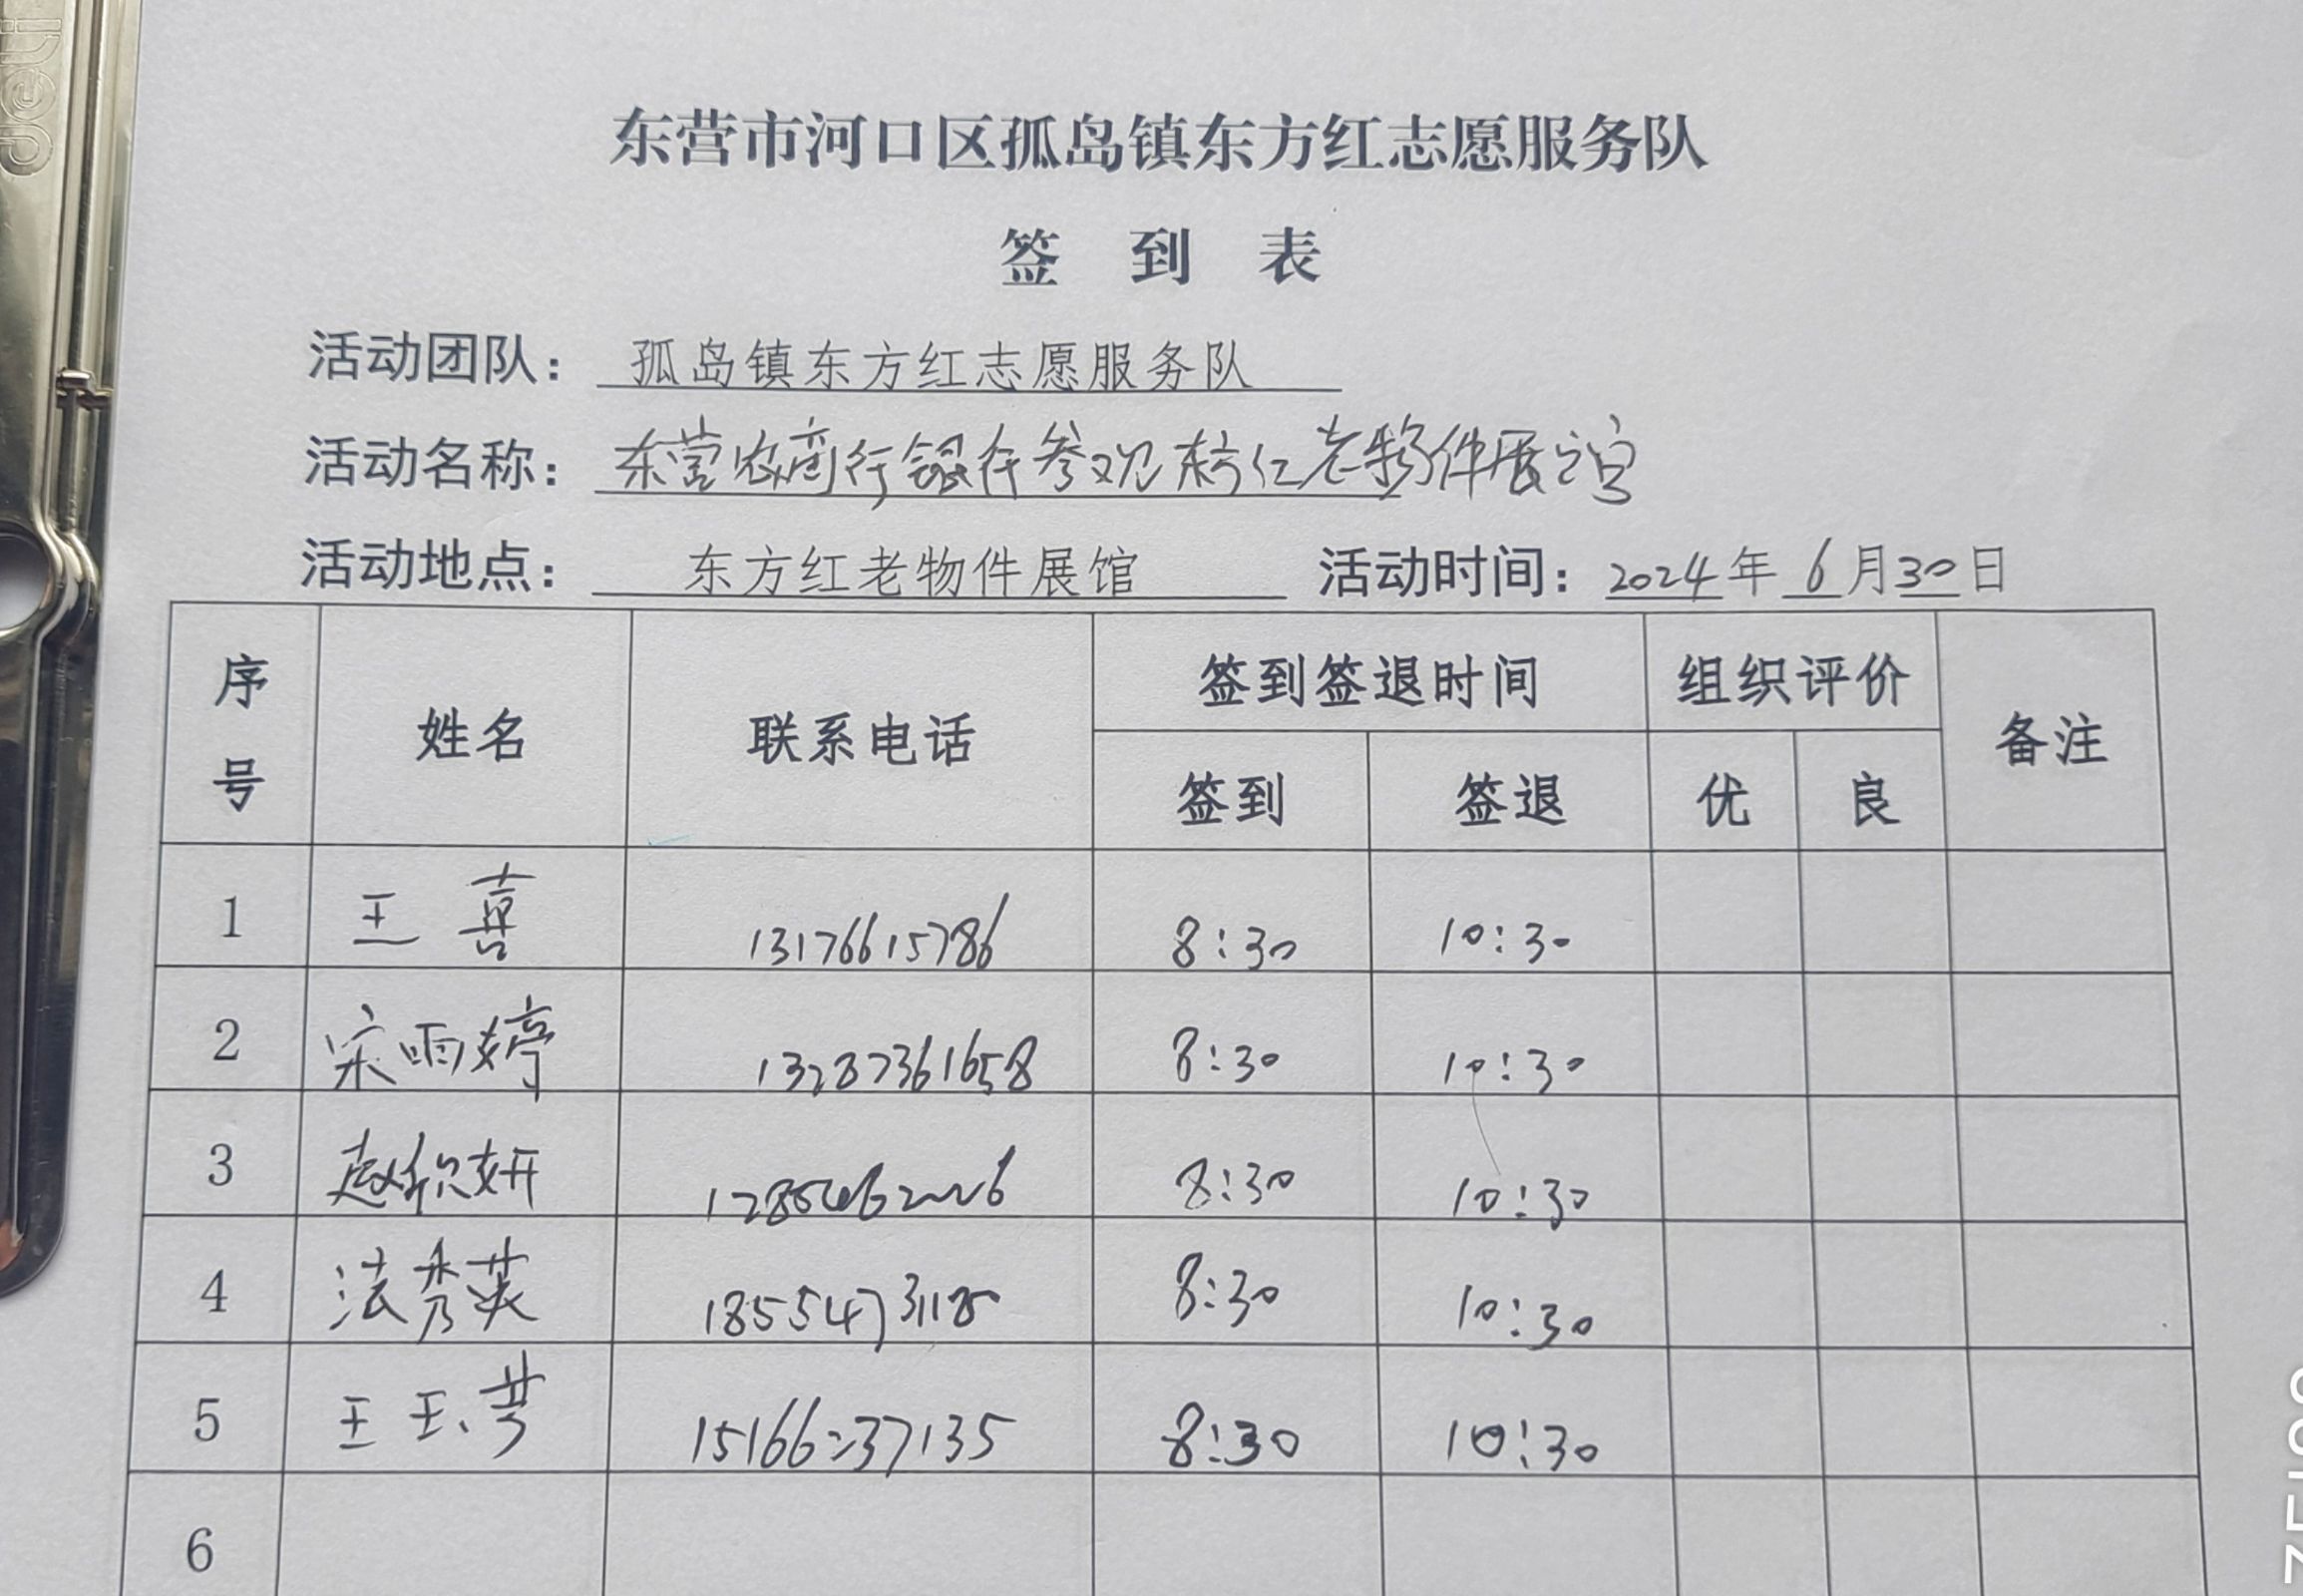 deli
东营市河口区孤岛镇东方红志愿服务队
签 到 表
活动团队: 孤岛镇东方红志愿服务队
活动名称: 东营农商行银行参观东方红老物件展馆
活动地点: 东方红老物件展馆 活动时间: 2024年 6月30日
序号 姓名 联系电话 签到签退时间 组织评价 备注
签到 签退 优 良
1 王喜 13176615786 8:30 10:30
2 宋雨婷 13287361658 8:30 10:30
3 赵 妍 8:30 10:30
4 法秀英 8:30 10:30
5 王玉 8:30 10:30
6